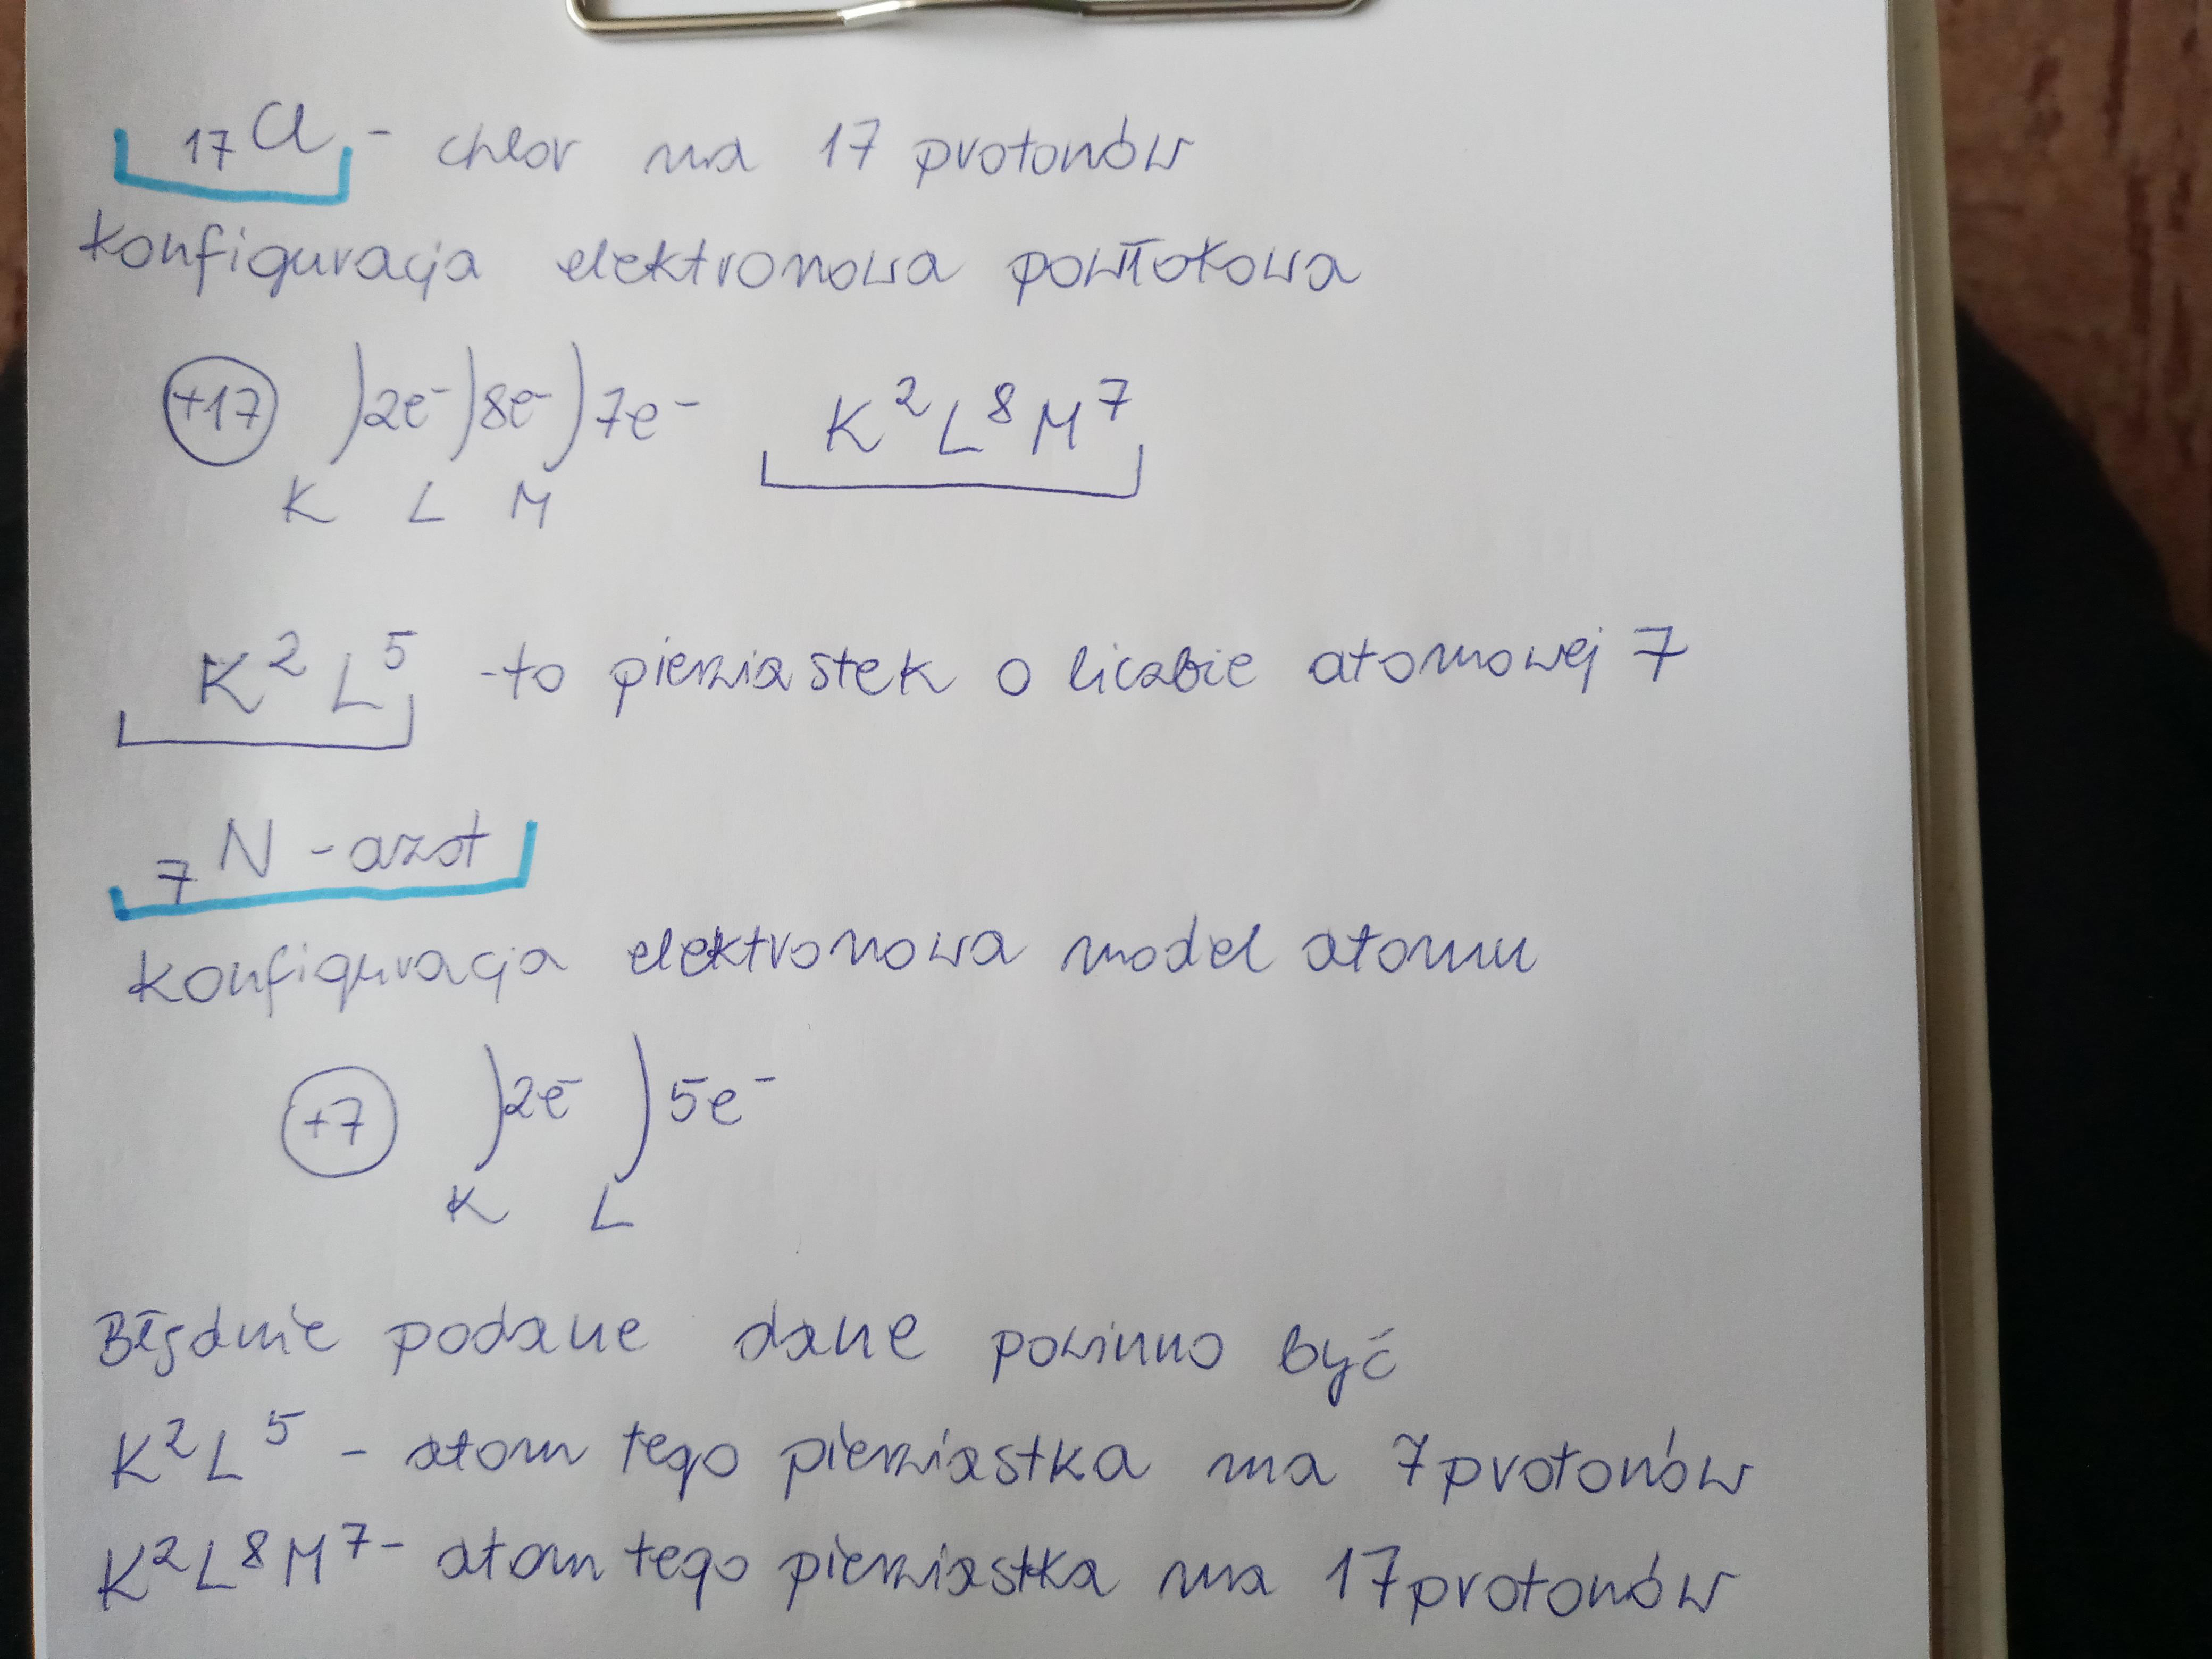 ₁₇Cl - chlor ma 17 protonów
Konfiguracja elektronowa powłokowa
+17 )2e⁻)8e⁻)7e⁻ K²L⁸M⁷
K L M
K² L⁵ - to pierwiastek o liczbie atomowej 7
₇N - azot
Konfiguracja elektronowa model atomu
+7 )2e⁻ )5e⁻
K L
Błędnie podane dane powinno być
K²L⁵ - atom tego pierwiastka ma 7 protonów
K²L⁸M⁷ - atom tego pierwiastka ma 17 protonów